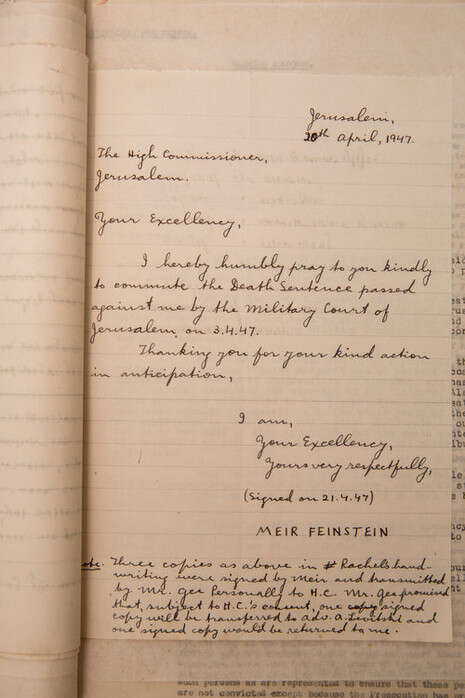 Jerusalem,
20th April, 1947.
The High Commissioner,
Jerusalem.
Your Excellency,
I hereby humbly pray to you kindly
to commute the Death Sentence passed
against me by the Military Court of
Jerusalem on 3.4.47.
Thanking you for your kind action
in anticipation,
I am,
Your Excellency,
Yours very respectfully,
(Signed on 21.4.47)
MEIR FEINSTEIN
ote: Three copies as above in Rachels hand-
writing were signed by Meir and transmitted
by Mr. Gee Personally to H.C. Mr. Gee promised
that, subject to H.C.'s consent, one copy signed
copy will be transferred to Adv. A. Levitski and
one signed copy would be returned to me.
such persons as are represented to ensure that these pe
are not convicted except because the Prosecution has